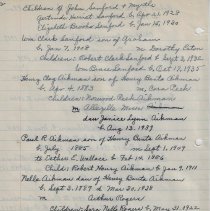 Children of John Sanford + Myrtle
Gertrude Harriet Sanford b. Apr 21, 1928
Elizabeth Brooke Sanford b. Jan 14, 1930
Wm. Clark Sanford son of Graham
b. Jan 7, 1908 m Dorothy Eaton
Children: Robert Clark Sanford b Sept 2, 1930
Wm Bruce Sanford b. Oct 17, 1935
Henry Clay Aikman son of Henry Bertis Aikman
b. Apr 4, 1883 m. Cora Peck
Children: Norwood Peck Aikman
m Allegile Moser
dau Janice Lynn Aikman
b. Aug 13, 1939
Paul R. Aikman son of Henry Bertis Aikman
b. July 1885 m Sept 1, 1909
to Esther C. Wallace b Feb 14, 1886
Child: Robert Henry Aikman b Jan 9, 1911
Nelle Aikman dau of Henry Bertis Aikman
b. Sept 3, 1889 d Mar 30, 1938
m Arthur Rogers
Children: Sara Nelle Rogers b. May 31, 1922